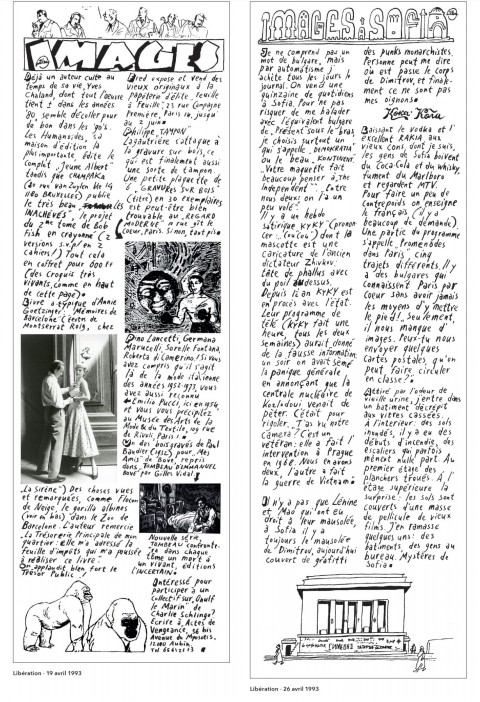 IMAGES
Déjà un auteur culte au
temps de sa vie, Yves
Chaland, dont tout l'œuvre
tient dans les années
80 semble décoller pour
de bon dans les 90's.
Les Humanoïdes, sa
maison d'édition la
plus importante, édite le
complet "Jeune Albert"
tandis que CHAMPAKA
1180 BRUXELLES) publie
le très beau
INACHEVÉS", le projet
du 2ème tome de Bob
Fish en crayonné (2
versions s.v.p! en 2
cahiers!) Tout cela
en coffret pour 600 Ff
(des croquis très
vivants, comme en haut
de cette page)
Livre atypique d'Annie
Goetzinger: "Mémoires de
Barcelone" (texte de
Montserrat Roig, chez
"La Sirène") Des choses vues
et remarquées, comme Flocon
de Neige, le gorille albinos
(voir en bas) dans le Zoo de
Barcelone. L'auteur remercie
"la Trésorerie Principale de mon
quartier: elle m'a adressé la
feuille d'impôts qui m'a poussée
à réaliser ce livre".
On applaudit bien fort le
Trésor Public!
expose et vend des
vieux originaux à la
"Papeterie d'été, feuille
à feuille", 23 rue Campagne
Première, Paris 14, jusqu'
au 2 juin
Philippe TAMPON
Lagautrière s'attaque à
la gravure sur bois, ce
qui est finalement aussi
une sorte de tampon.
Une petite plaquette de
6 "GRAVURES SUR BOIS"
(titre) en 30 exemplaires
est peut-être bien
trouvable au "REGARD
MODERNE"
cœur, Paris. Sinon, tant pis
Dino Lancetti, Germana
Marucelli, Sorelle Fontana,
Roberta di Camerino! Si vous
avez compris qu'il s'agit
là de la mode italienne
des années 1952-1973, vous
avez aussi reconnu
Emilio Pucci, ici en 1954
et vous vous précipitez
au Musée des Arts de la
Mode & du Textile, 109 rue
de Rivoli, Paris 1.
des bois gravés de Paul
Baudier (1962) pour "Mes
Amis" de Bove, repris
dans "TOMBEAU D'EMMANUEL
BOVE" par Gilles Vidal
Nouvelle série,
TOMBEAU confronte-
ra dans chaque
tome un mort à
un vivant, éditions
L'INCERTAIN
Intéressé pour
participer à un
collectif sur "Gaulf
le Marin" de
Charlie Schlingo?
Écrire à, Actes de
Vengeance, 92 bis
Avenue du Myosotis,
12200 Aubin,
Libération - 19 avril 1993
IMAGES à SOFIA
Je ne comprend pas un
mot de bulgare, mais
par automatisme j'
achète tous les jours le
journal. On vend une
quinzaine de quotidiens
à Sofia. Pour ne pas
risquer de me balader
avec l'équivalent bulgare
de "Présent" sous le bras,
je choisis surtout un
qui s'appelle "DEMOKRATIA"
ou le beau "KONTINENT".
"Votre maquette fait
beaucoup penser à The
Independent".. "Entre
nous deux: on l'a un
peu volé".
Il y a un hebdo
satirique KYKY (pronon-
cer: "coucou") dont la
mascotte est une
caricature de l'ancien
dictateur Zhivkov:
tête de phallus avec
du poil au dessus.
Depuis 12 an KYKY est
en procès avec l'état.
Leur programme de
télé (KYKY fait une
heure, tous les deux
semaines) aurait donné
de la fausse information.
un soir on avait semé
la panique générale
en annonçant que la
centrale nucléaire de
Kozlodui venait de
péter. C'était pour
rigoler. "T'as vu notre
caméra? C'est un
vétéran: elle a fait l'
intervention à Prague
en 1968. Nous en avons
deux, l'autre a fait
la guerre de Vietnam
Il n'y a pas que Lénine
et Mao qui ont eu
droit à leur mausolée,
à Sofia il y a
toujours le mausolée
de Dimitrov, aujourd'hui
couvert de graffiti
des punks monarchistes.
Personne peut me dire
où est passé le corps
de Dimitrov, et finale-
ment ce ne sont pas
mes oignons
Koka-Kola
Laissant le vodka et l'
excellent RAKIA aux
vieux cons, dont je suis,
les gens de Sofia boivent
du Coca-Cola et du whisky,
fument du Marlboro
et regardent MTV.
Pour faire un peu de
contrepoids on enseigne
le français (il y a
beaucoup de demande).
Une partie du programme
s'appelle "Promenades
dans Paris": cinq
trajets différents. Il y
a des bulgares qui
connaissent Paris par
cœur sans avoir jamais
les moyens d'y mettre
le pied! Seulement,
il nous manque d'
images. Peux-tu nous
envoyer quelques
cartes postales, qu'on
peut faire circuler
en classe?
Attiré par l'odeur de
vieille urine, j'entre dans
un bâtiment décrépit
aux vitres cassées.
A l'intérieur: des sols
inondés, il y a eu des
débuts d'incendie, des
escaliers qui parfois
mènent nulle part. Au
premier étage des
planchers troués. A l'
étage supérieure la
surprise: les sols sont
couverts d'une masse
de pellicule de vieux
films. J'en ramasse
quelques uns: des
batiments, des gens au
bureau. Mystères de
Sofia
Libération - 26 avril 1993